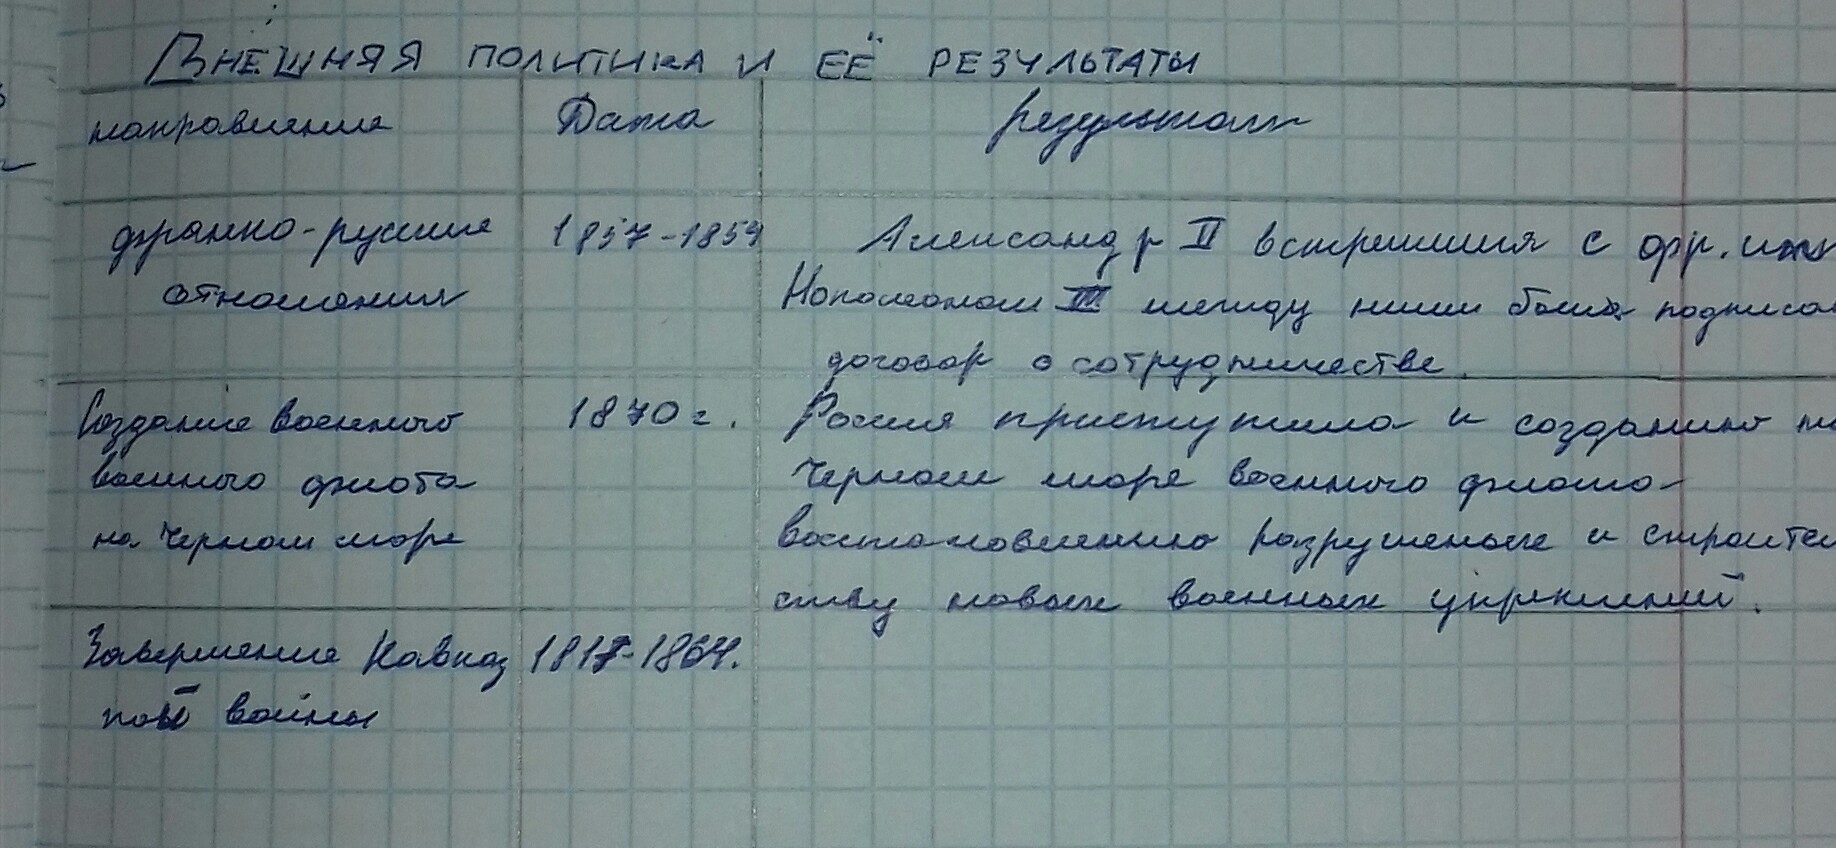 ВНЕШНЯЯ ПОЛИТИКА И ЕЁ РЕЗУЛЬТАТЫ
направление Дата результат
франко-русские 1857-1859 Александр II встретился с фр.
отношения Наполеоном III между ними была подписан
договор о сотрудничестве.
Создание военного 1870 г. Россия приступила к созданию на
военного флота Черном море военного флота-
на Черном море восстановлению разрушеных и строитель
ству новых военных укреплений.
Завершение Кавказ 1817-1864.
ной войны